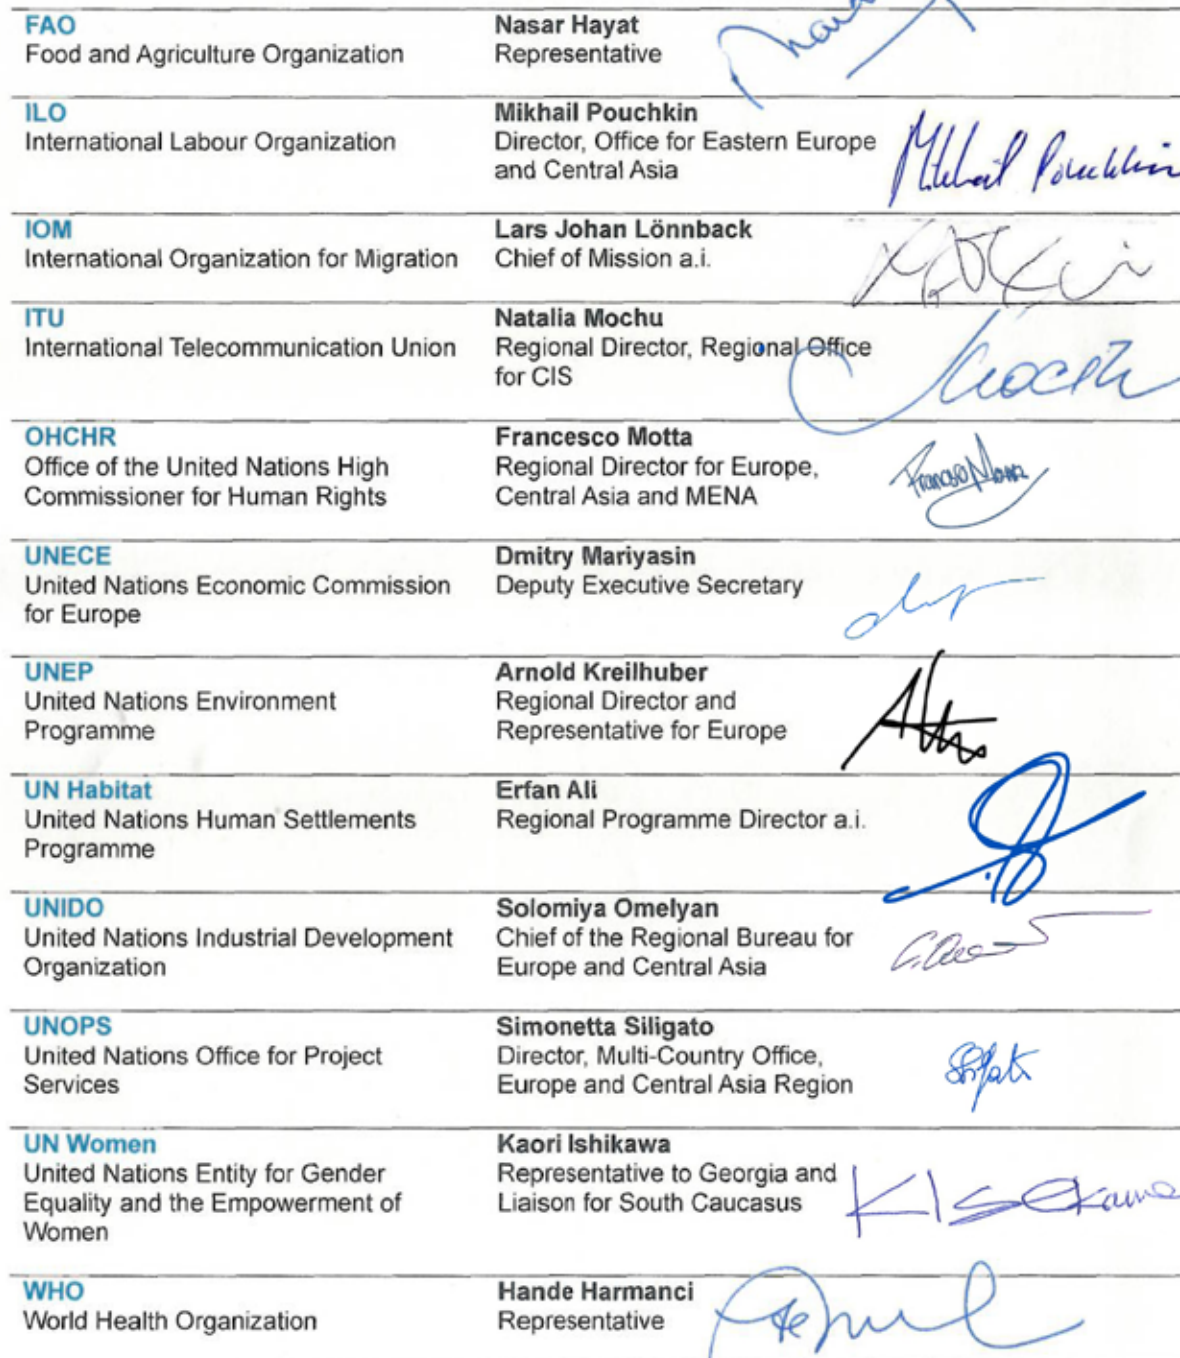 FAO
Food and Agriculture Organization
Nasar Hayat
Representative
ILO
International Labour Organization
Mikhail Pouchkin
Director, Office for Eastern Europe
and Central Asia
Mikhail Pouchkin
IOM
International Organization for Migration
Lars Johan Lönnback
Chief of Mission a.i.
ITU
International Telecommunication Union
Natalia Mochu
Regional Director, Regional Office
for CIS
OHCHR
Office of the United Nations High
Commissioner for Human Rights
Francesco Motta
Regional Director for Europe,
Central Asia and MENA
UNECE
United Nations Economic Commission
for Europe
Dmitry Mariyasin
Deputy Executive Secretary
UNEP
United Nations Environment
Programme
Arnold Kreilhuber
Regional Director and
Representative for Europe
UN Habitat
United Nations Human Settlements
Programme
Erfan Ali
Regional Programme Director a.i.
UNIDO
United Nations Industrial Development
Organization
Solomiya Omelyan
Chief of the Regional Bureau for
Europe and Central Asia
UNOPS
United Nations Office for Project
Services
Simonetta Siligato
Director, Multi-Country Office,
Europe and Central Asia Region
UN Women
United Nations Entity for Gender
Equality and the Empowerment of
Women
Kaori Ishikawa
Representative to Georgia and
Liaison for South Caucasus
WHO
World Health Organization
Hande Harmanci
Representative